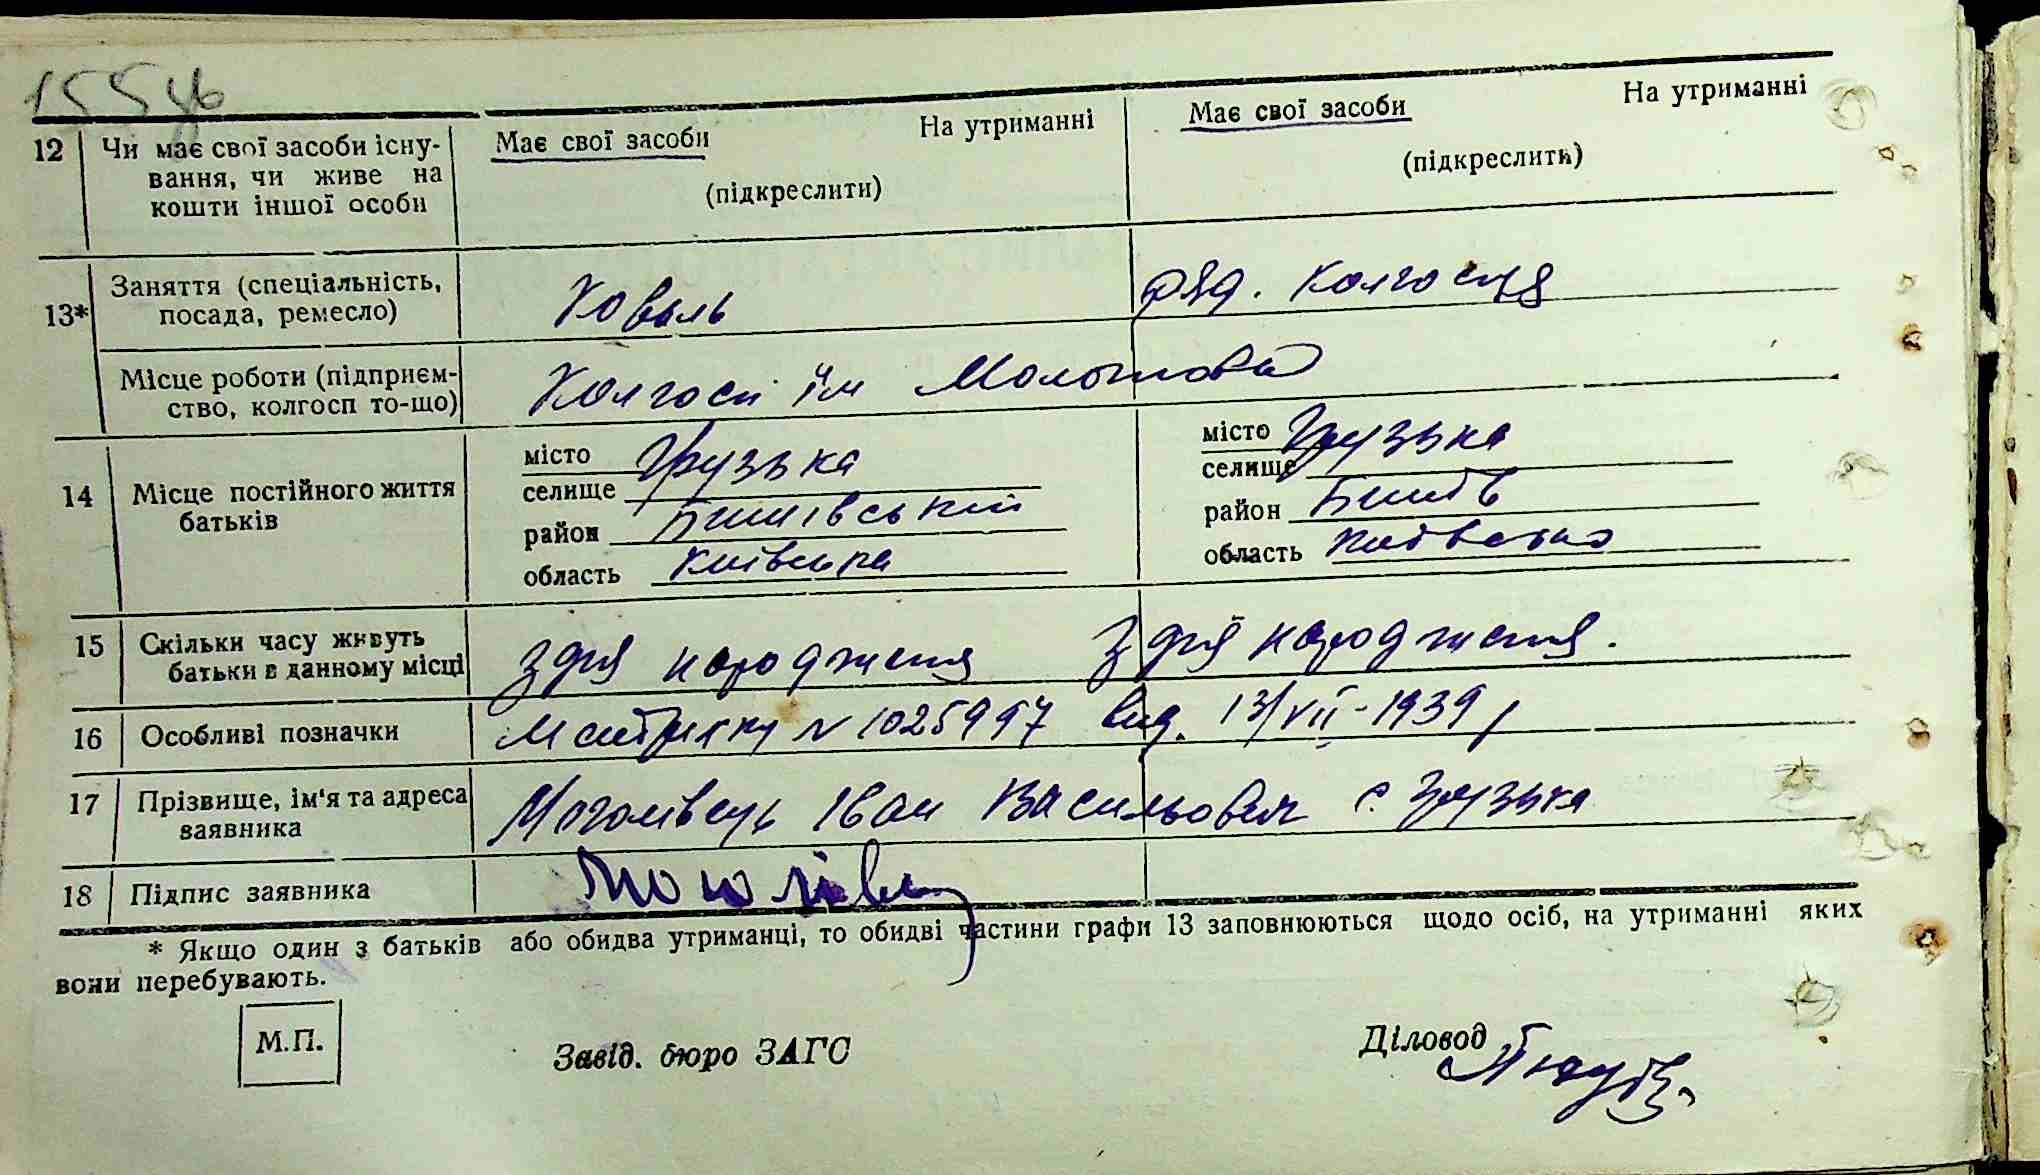 12 Чи має свої засоби існу-
вання, чи живе на
кошти іншої особи
Має свої засоби На утриманні
(підкреслити)
Має свої засоби На утриманні
(підкреслити)
13* Заняття (спеціальність,
посада, ремесло)
Коваль ряд. колгоспу
Місце роботи (підприєм-
ство, колгосп то-що)
Колгосп ім Молотова
14 Місце постійного життя
батьків
місто
селище Грузька
район Бишівський
область Київська
місто
селище Грузька
район Бишів
область Київська
15 Скільки часу живуть
батьки в данному місці
З дня народження З дня народження.
16 Особливі позначки
N 1025997 вид. 13/VII-1939 р
17 Прізвище, ім'я та адреса
заявника
Іван Васильович с Грузька
18 Підпис заявника
* Якщо один з батьків або обидва утриманці, то обидві частини графи 13 заповнюються щодо осіб, на утриманні яких
вони перебувають.
М.П.
Завід. бюро ЗАГС
Діловод